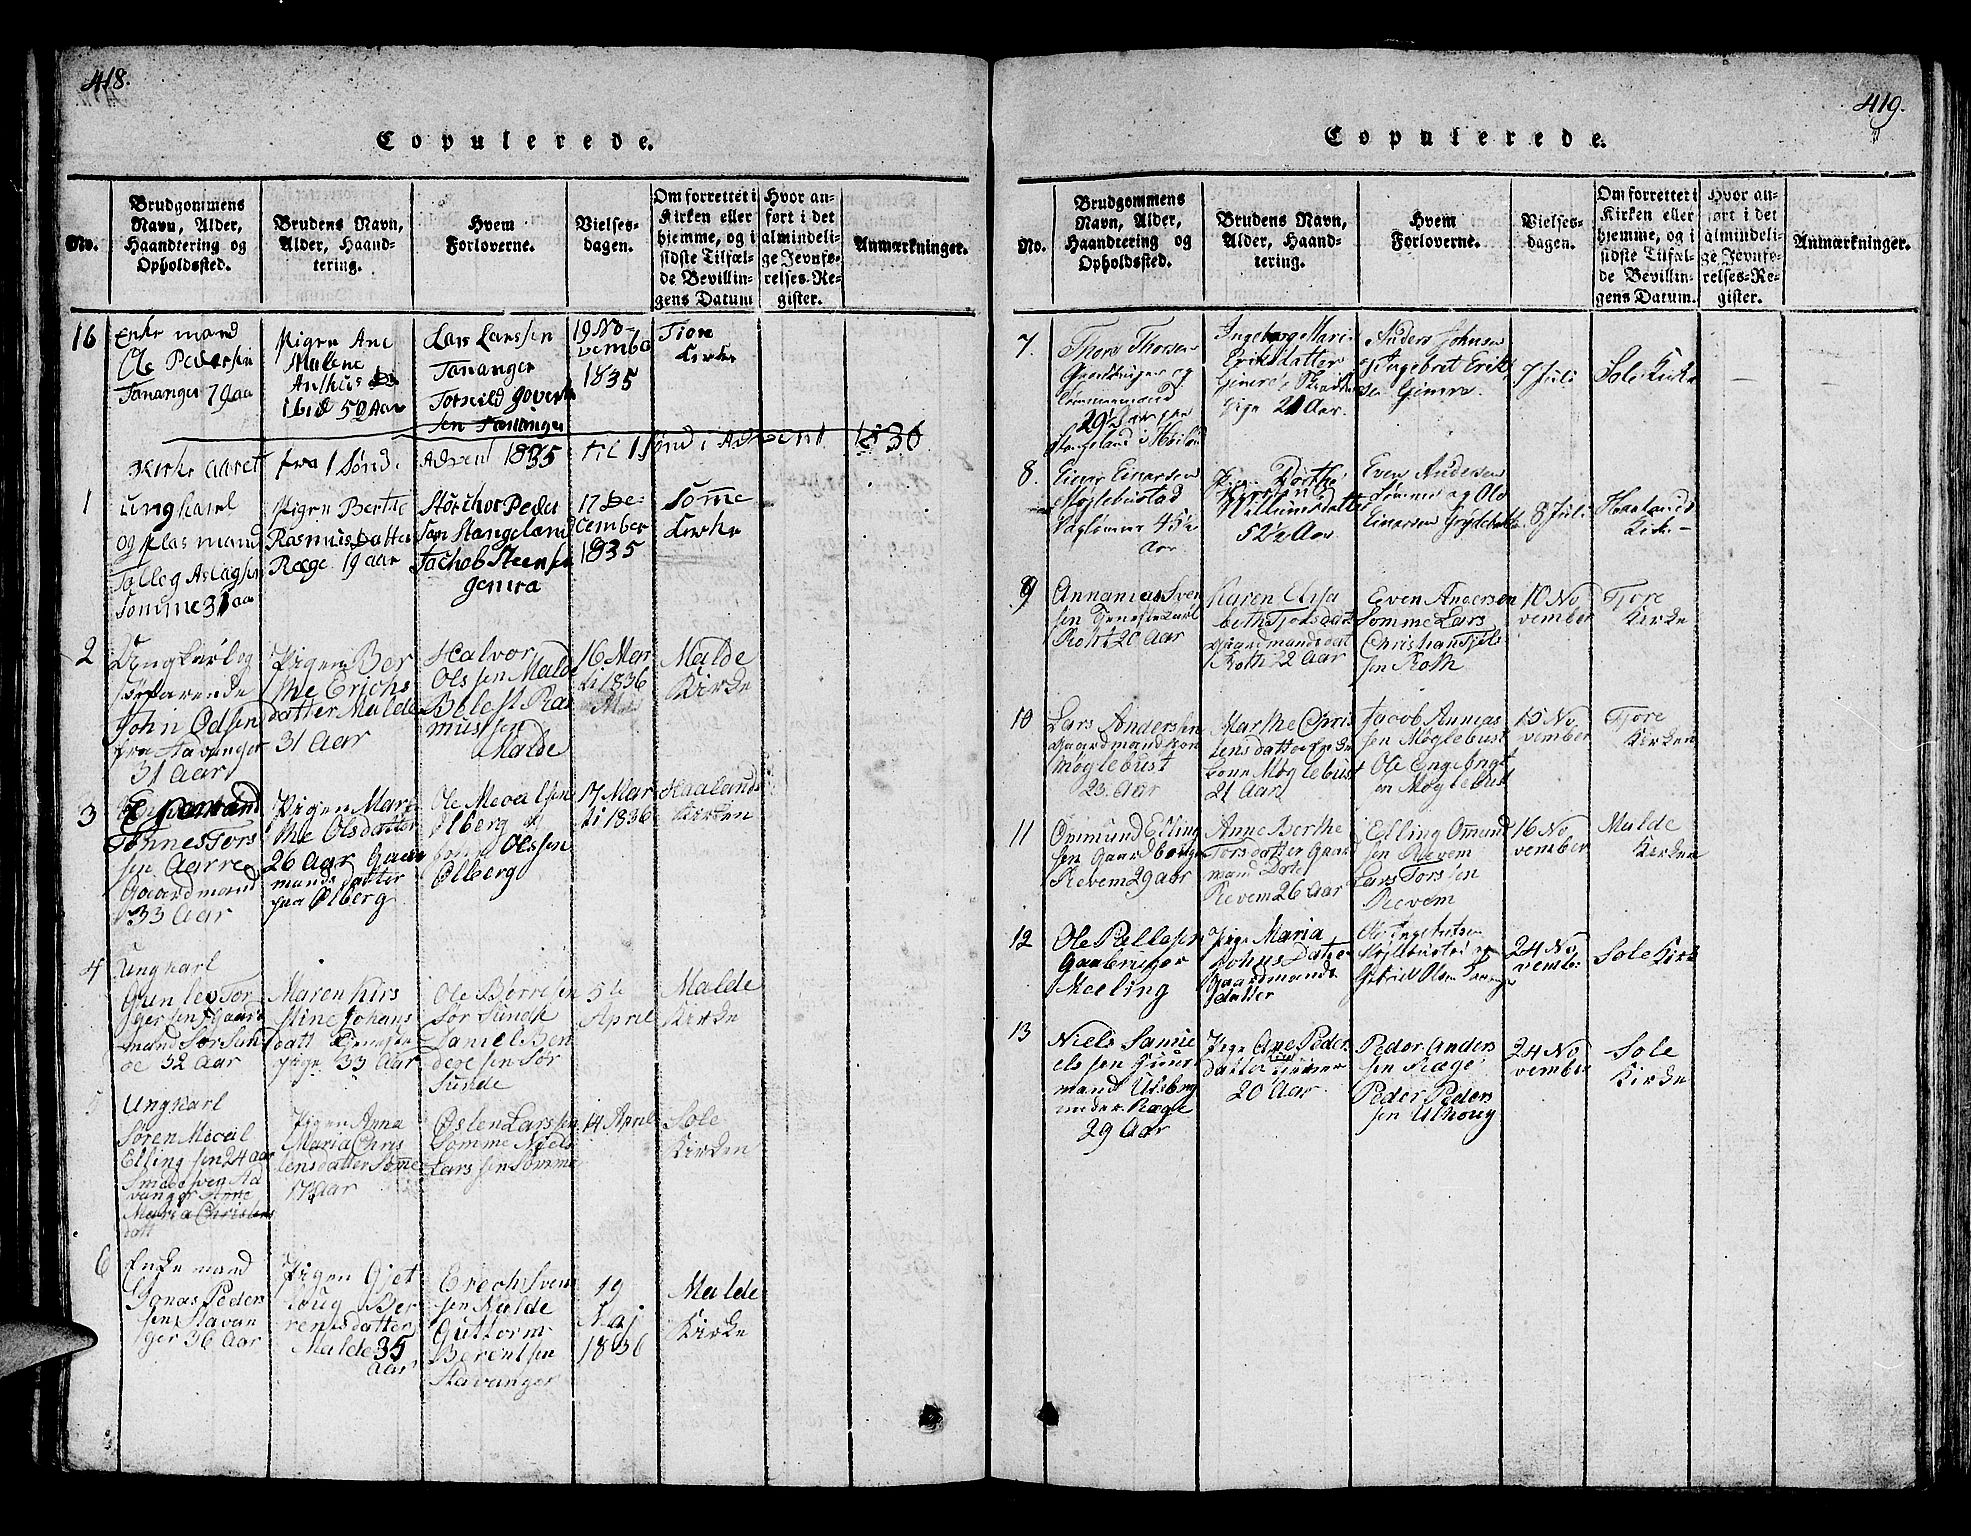 418.
Copulerede.
No.
Brudgommens
Navn, Alder,
Haandtering og
Opholdssted.
Brudens Navn,
Alder, Haand-
tering.
Hvem
Forloverne.
Vielses-
dagen.
Om forrettet i
Kirken eller
hjemme, og i
sidste Tilfæl-
de Bevillin-
gens Datum
Hvor an-
ført i det
almindeli-
ge Jevnfø-
relses-Re-
gister.
Anmærkninger.
16
Enke mand
Ole Pedersen
Tananger 79 aa
Pigen Ane
Malene
ibid 50 Aar
Lars Larssen
Tananger
Tornild Govert
sen Tananger
19 No-
vembe
1835
Tion
Kirke
Kirke aaret fra 1 Sønd i Advent 1835 til 1 Sønd i Advent 1836
1
Ungkarl
og plas mand
Tolleg Aslagsen
Somme 31 aa
Pigen Berthe
Rasmusdatter
Ræge 19 aar
Storchor Peder
sen Stangeland
Jachob Steensen
Gemra
17 De-
cember
1835
Sømme
Kirke
2
Ungkarl og
søfarende
John Odsen
fra Stavanger
31 Aar
Pigen Ber
the Erichs
datter Malde
31 Aar
Halvor
Olssen Malde
Ras
mussen
Malde
16 Mar
ti 1836
Malde
Kirke
3
Tønnes Tors
sen Aarre
Gaardmand
33 Aar
Pigen Mar
the Olsdatter
26 Aar Gaar
mands datter
fra Ølberg
Ole Mecelsen
Ølberg og
Olssen
Ølberg
17 Mar
ti 1836
Haalands
Kirken
4
Ungkarl
Gunlev Tor
gersen Gaard
mand Sør Sun
de 32 Aar
Maren Kirs
stine Johans
datt Tjeneste
pige 33 Aar
Ole Børresen
Sør Sunde
Daniel Ben
dexsen Sør
Sunde
5te
April
Malde
Kirke
5
Ungkarl
Søren Meceil
Elling sen 24 aar
Smedesven Sta
vanger Anne
Maria Christens
datt
Pigen Anna
Maria Chris
tensdatter Sømme
17 Aar
Østen Larssen
Sømme Niels
Larssen Sømme
14 April
Sole
Kirken
6
Enke mand
Jonas Peders
sen Stavan
ger 36 Aar
Pigen Gjet
loug Ber
rentsdatter
Malde 35
Aar
Erech Svens
sen Malde
Guttorm
Berentsen
Stavanger
19
Maj
1836
Malde
Kirke
419.
Copulerede.
No.
Brudgommens
Navn, Alder,
Haandtering og
Opholdssted.
Brudens Navn,
Alder, Haand-
tering.
Hvem
Forloverne.
Vielses-
dagen.
Om forrettet i
Kirken eller
hjemme, og i
sidste Tilfæl-
de Bevillin-
gens Datum.
Hvor an-
ført i det
almindeli-
ge Jevnfø-
relses-Re-
gister.
Anmærkninger.
7.
Thore Thorsen
Gaardbruger og
29½ aar
Stangeland i Høiland
Ingeborg Mari
Eriksdatter
Gimre
Pige 21 Aar.
Anders Johnsen
og Ingebret Erik
sen Gimre.
7 Juli
Sole Kirke
8.
Einar Einarsen
Møglebustad
45½
Aar.
Pige Dorthe
Willumsdatter
52½ Aar
Even Andersen
Sømme og Ole
Einarsen
8 Juli
Haalands
Kirke
9
Annanias Sven
sen Tjenestekarl
Roht 20 Aar
Karen Elisa
beth Tjorsdatt
Gaardmandsdat
Roth 22 Aar
Even Andersen
Somme Lars
Christian Tjels
sen Roth
10 No
vember
Tjore
Kirke
10
Lars Anderssen
Gaardmandskon
Møglebust
23 Aar
Marthe Chris
tensdatter Enke
kone Møglebust
21 Aar
Jacob Annias
sen Møglebust
Ole Engebregt
sen Møglebust
15 No
vember
Tjore
Kirken
11
Ommund Elling
sen Gaardbruger
Revem 29 aar
Anne Berthe
Torsdatter Gaar
mand Date
Revem 26 Aar
Elling Ommund
sen Revem
Lars Torssen
Revem
16 No
vember
Malde
Kirken
12
Ole Pallesen
Gaabruger
Meeling
Pige Maria
Johnsdatter
Gaardmands
datter
Ole Ingebretsen
Møglebustad og
Gabriel Olsen
24 No
vembr
Sole Kirke
13
Niels Samu
elssen Guur
mand Ulsberg
under Ræge
29 Aar
Pige Ane Peders
datter
20 Aar
Peder Anders
sen Ræge
Peder Peders
sen Ulhoug
24 No
vember
Sole
Kirke